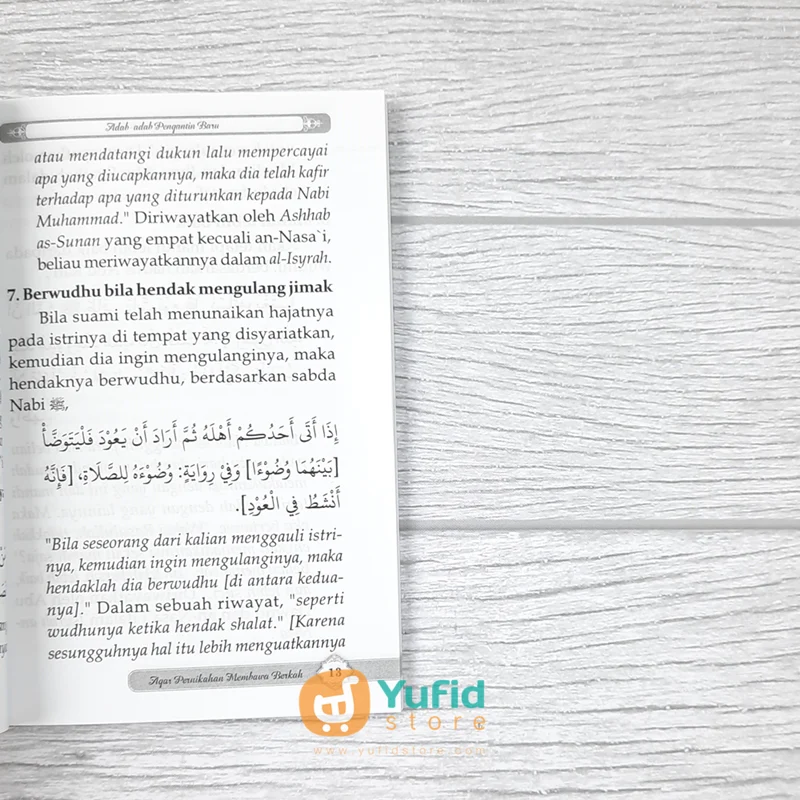 Adab-adab Pengantin Baru
atau mendatangi dukun lalu mempercayai
apa yang diucapkannya, maka dia telah kafir
terhadap apa yang diturunkan kepada Nabi
Muhammad." Diriwayatkan oleh Ashhab
as-Sunan yang empat kecuali an-Nasa`i,
beliau meriwayatkannya dalam al-Isyrah.
7. Berwudhu bila hendak mengulang jimak
Bila suami telah menunaikan hajatnya
pada istrinya di tempat yang disyariatkan,
kemudian dia ingin mengulanginya, maka
hendaknya berwudhu, berdasarkan sabda
Nabi ﷺ,
إِذَا أَتَى أَحَدُكُمْ أَهْلَهُ ثُمَّ أَرَادَ أَنْ يَعُوْدَ فَلْيَتَوَضَّأْ
[بَيْنَهُمَا وُضُوْءًا] وَفِيْ رِوَايَةٍ: وُضُوْءَهُ لِلصَّلَاةِ، [فَإِنَّهُ
أَنْشَطُ فِي الْعَوْدِ].
"Bila seseorang dari kalian menggauli istri-
nya, kemudian ingin mengulanginya, maka
hendaklah dia berwudhu [di antara kedua-
nya]." Dalam sebuah riwayat, "seperti
wudhunya ketika hendak shalat." [Karena
sesungguhnya hal itu lebih menguatkannya
Agar Pernikahan Membawa Berkah 13
Yufid
store
www.yufidstore.com